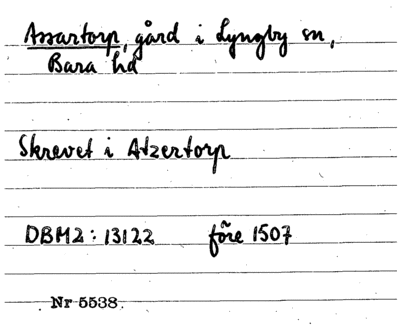 Assartorp, gård i Lyngby sn,
Bara hd
Skrevet i Atzertorp
DBM2: 13122 före 1507
Nr 5538.